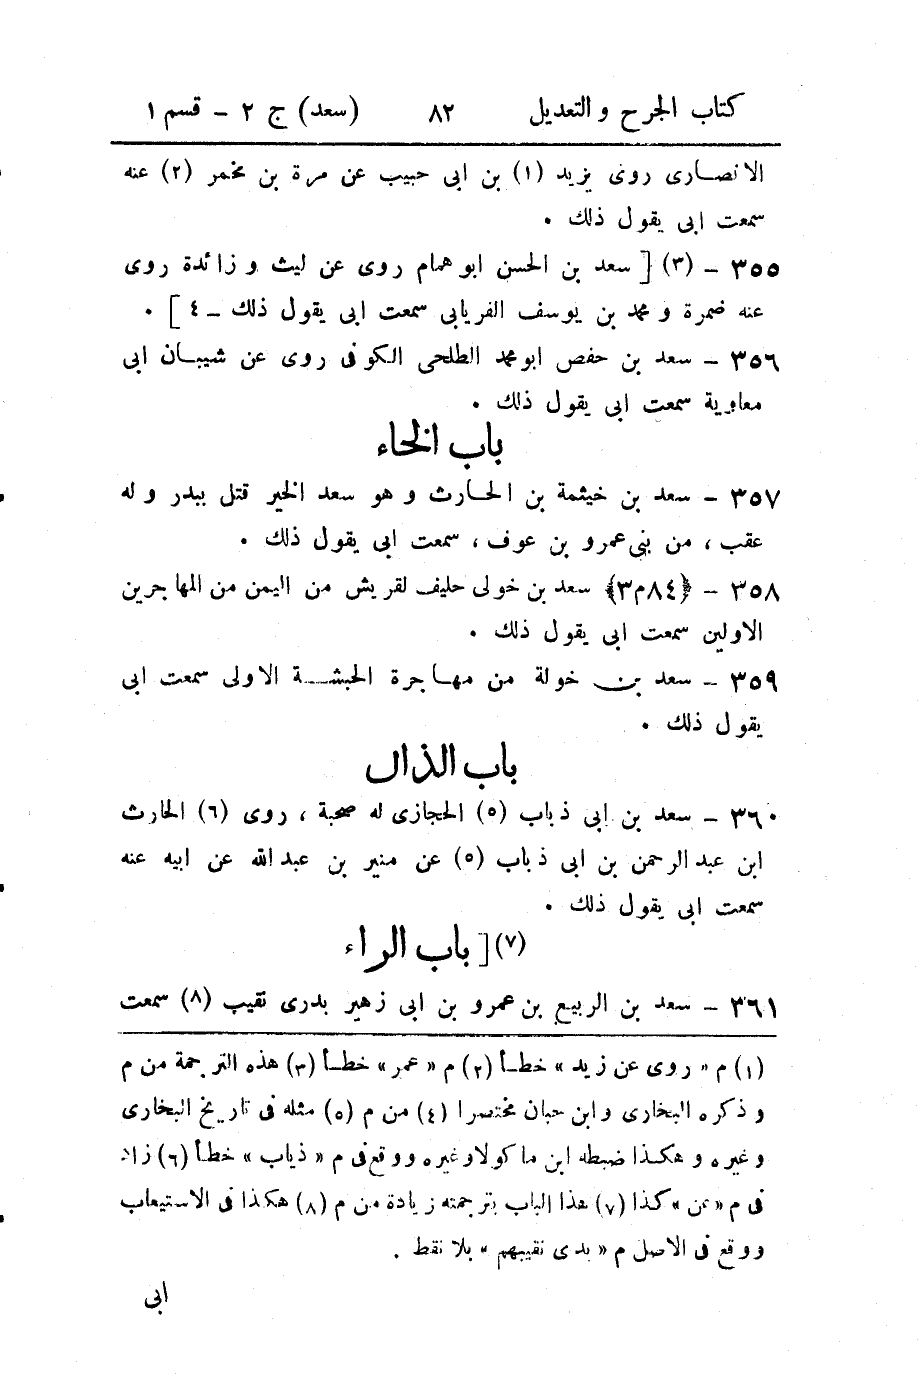 كتاب الجرح والتعديل ٨٢ (سعد) ج ٢ - قسم ١
الانصارى روى يزيد (١) بن ابى حبيب عن مرة بن مخمر (٢) عنه
سمعت ابى يقول ذلك .
٣٥٥ - (٣) [ سعد بن الحسن ابو همام روى عن ليث و زائدة روى
عنه ضمرة و محمد بن يوسف الفريابى سمعت ابى يقول ذلك - ٤ ] .
٣٥٦ - سعد بن حفص ابو محمد الطلحى الكوفى روى عن شيبان ابى
معاوية سمعت ابى يقول ذلك .
باب الخاء
٣٥٧ - سعد بن خيثمة بن الحارث و هو سعد الخير قتل ببدر و له
عقب ، من بنى عمرو بن عوف ، سمعت ابى يقول ذلك .
٣٥٨ - ﴿٨٤م٣﴾ سعد بن خولى حليف لقريش من اليمن من المهاجرين
الاولين سمعت ابى يقول ذلك .
٣٥٩ - سعد بن خولة من مهاجرة الحبشة الاولى سمعت ابى
يقول ذلك .
باب الذال
٣٦٠ - سعد بن ابى ذباب (٥) الحجازى له صحبة ، روى (٦) الحارث
ابن عبد الرحمن بن ابى ذباب (٥) عن منير بن عبد الله عن ابيه عنه
سمعت ابى يقول ذلك .
(٧) [ باب الراء
٣٦١ - سعد بن الربيع بن عمرو بن ابى زهير بدرى نقيب (٨) سمعت
(١) م « روى عن زيد » خطأ (٢) م « عمر » خطأ (٣) هذه الترجمة من م
و ذكره البخارى و ابن حبان مختصرا (٤) من م (٥) مثله فى تاريخ البخارى
و غيره و هكذا ضبطه ابن ماكولا و غيره و وقع فى م « ذياب » خطأ (٦) زاد
فى م « عن » كذا (٧) هذا الباب بترجمته زيادة من م (٨) هكذا فى الاستيعاب
و وقع فى الاصل م « بدى نقيبهم » بلا نقط .
ابى